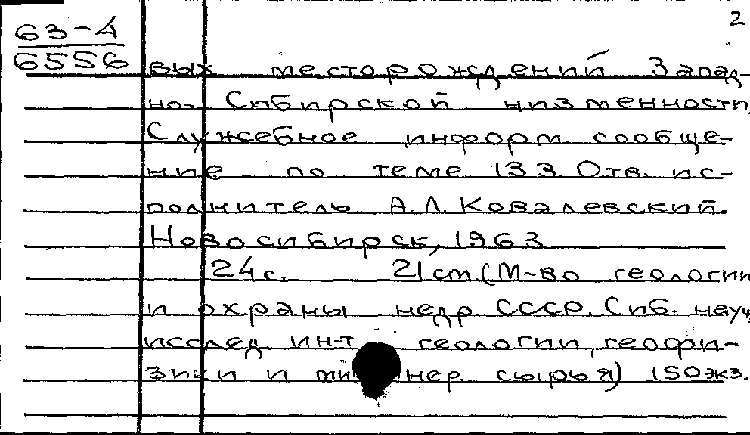 2
63-4
6556
вых месторождений Запад-
но-Сибирской низменности
Служебное информ. сообще-
ние по теме 133. Отв. ис-
полнитель А.Л. Ковалевский.
Новосибирск, 1963
24с. 21см (М-во геологии
и охраны недр СССР. Сиб. науч
исслед. ин-т геологии, геофи-
зики и ми нер. сырья) 150экз.